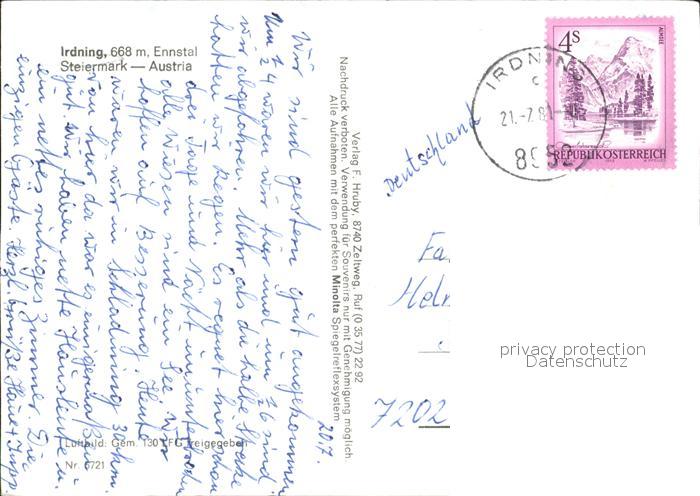 Irdning, 668 m, Ennstal
Steiermark — Austria
20.7.
Wir sind gestern gut angekommen
Um 24 waren wir hier und um 16 sind
wir abgefahren. Mehr als die halbe Strecke
hatten wir Regen. Es regnet hier schon
drei Tage und Nächte ununterbrochen
alle Wiesen sind ein See wir
hoffen auf Besserung. Heute
waren wir in Schladming 30 km.
von hier da war es einigermaßen
gut. Wir haben nette Hausleute u.
ein nettes ruhiges Zimmer. Die
einzigen Gäste Herzl. Grüße
Luftbild: Gem. 130 LFG freigegeben
Nr. 6721
Verlag F. Hruby, 8740 Zeltweg, Ruf (0 35 77) 22 92
Nachdruck verboten. Verwendung für Souvenirs nur mit Genehmigung möglich.
Alle Aufnahmen mit dem perfekten Minolta Spiegelreflexsystem
4S
ALMSEE
REPUBLIK ÖSTERREICH
IRDNING
c
21.-7.81
8952
Deutschland
Fa
Helm
7202
privacy protection
Datenschutz